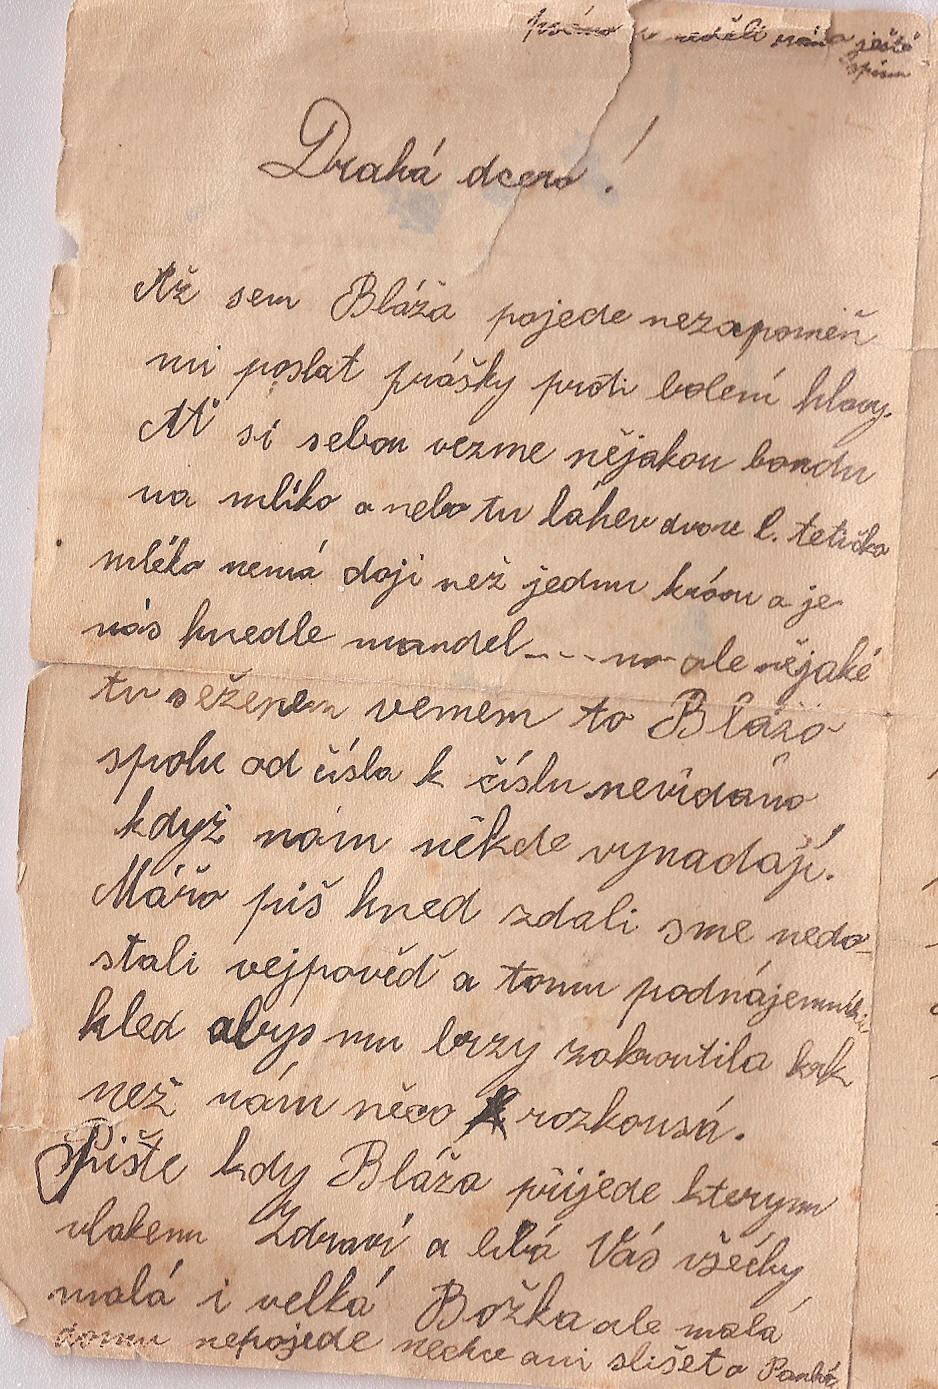 psáno v neděli ráno ještě
spím
Drahá dcero!
Až sem Bláža pojede nezapomeň
mi poslat prášky proti bolení hlavy.
Ať si sebou vezme nějakou bandu
na mlíko a nebo tu láhev dvou l. tetička
mléko nemá dojí než jednu krávu a je
nás hnedle mandel---- no ale nějaké
tu seženem vemem to Blážo
spolu od čísla k číslu nevídáno
když nám někde vynadají.
Mářo piš hned zdali sme nedo-
stali vejpověď a tomu podnájemníku
hleď abys mu brzy zakroutila krk
než nám něco rozkousá.
Pište kdy Bláža přijede kterym
vlakem Zdraví a líbá Vás všecky
malá i velká Božka ale malá
domu nepojede nechce ani slišet o